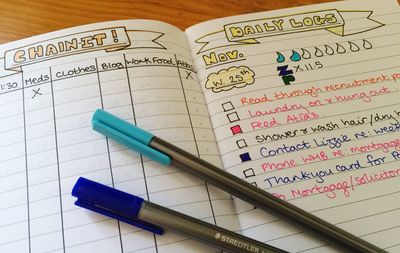 CHAIN IT!
1:30 Meds Clothes Blog Work Food Atlas
X X
DAILY LOGS
Nov.
W. 25th
ZZ X 11.5
P
Read through recruitment po
Laundry on & hung out
Feed Atlas
Shower & wash hair/dry
Contact Lizzie re: week
Phone WHB re mortgage
Thank you card for
Mortgage/solicitor
STAEDTLER